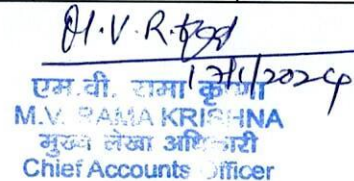 M.V.R.
एम.वी. रामा कृष्णा
M.V. RAMA KRISHNA
मुख्य लेखा अधिकारी
Chief Accounts Officer